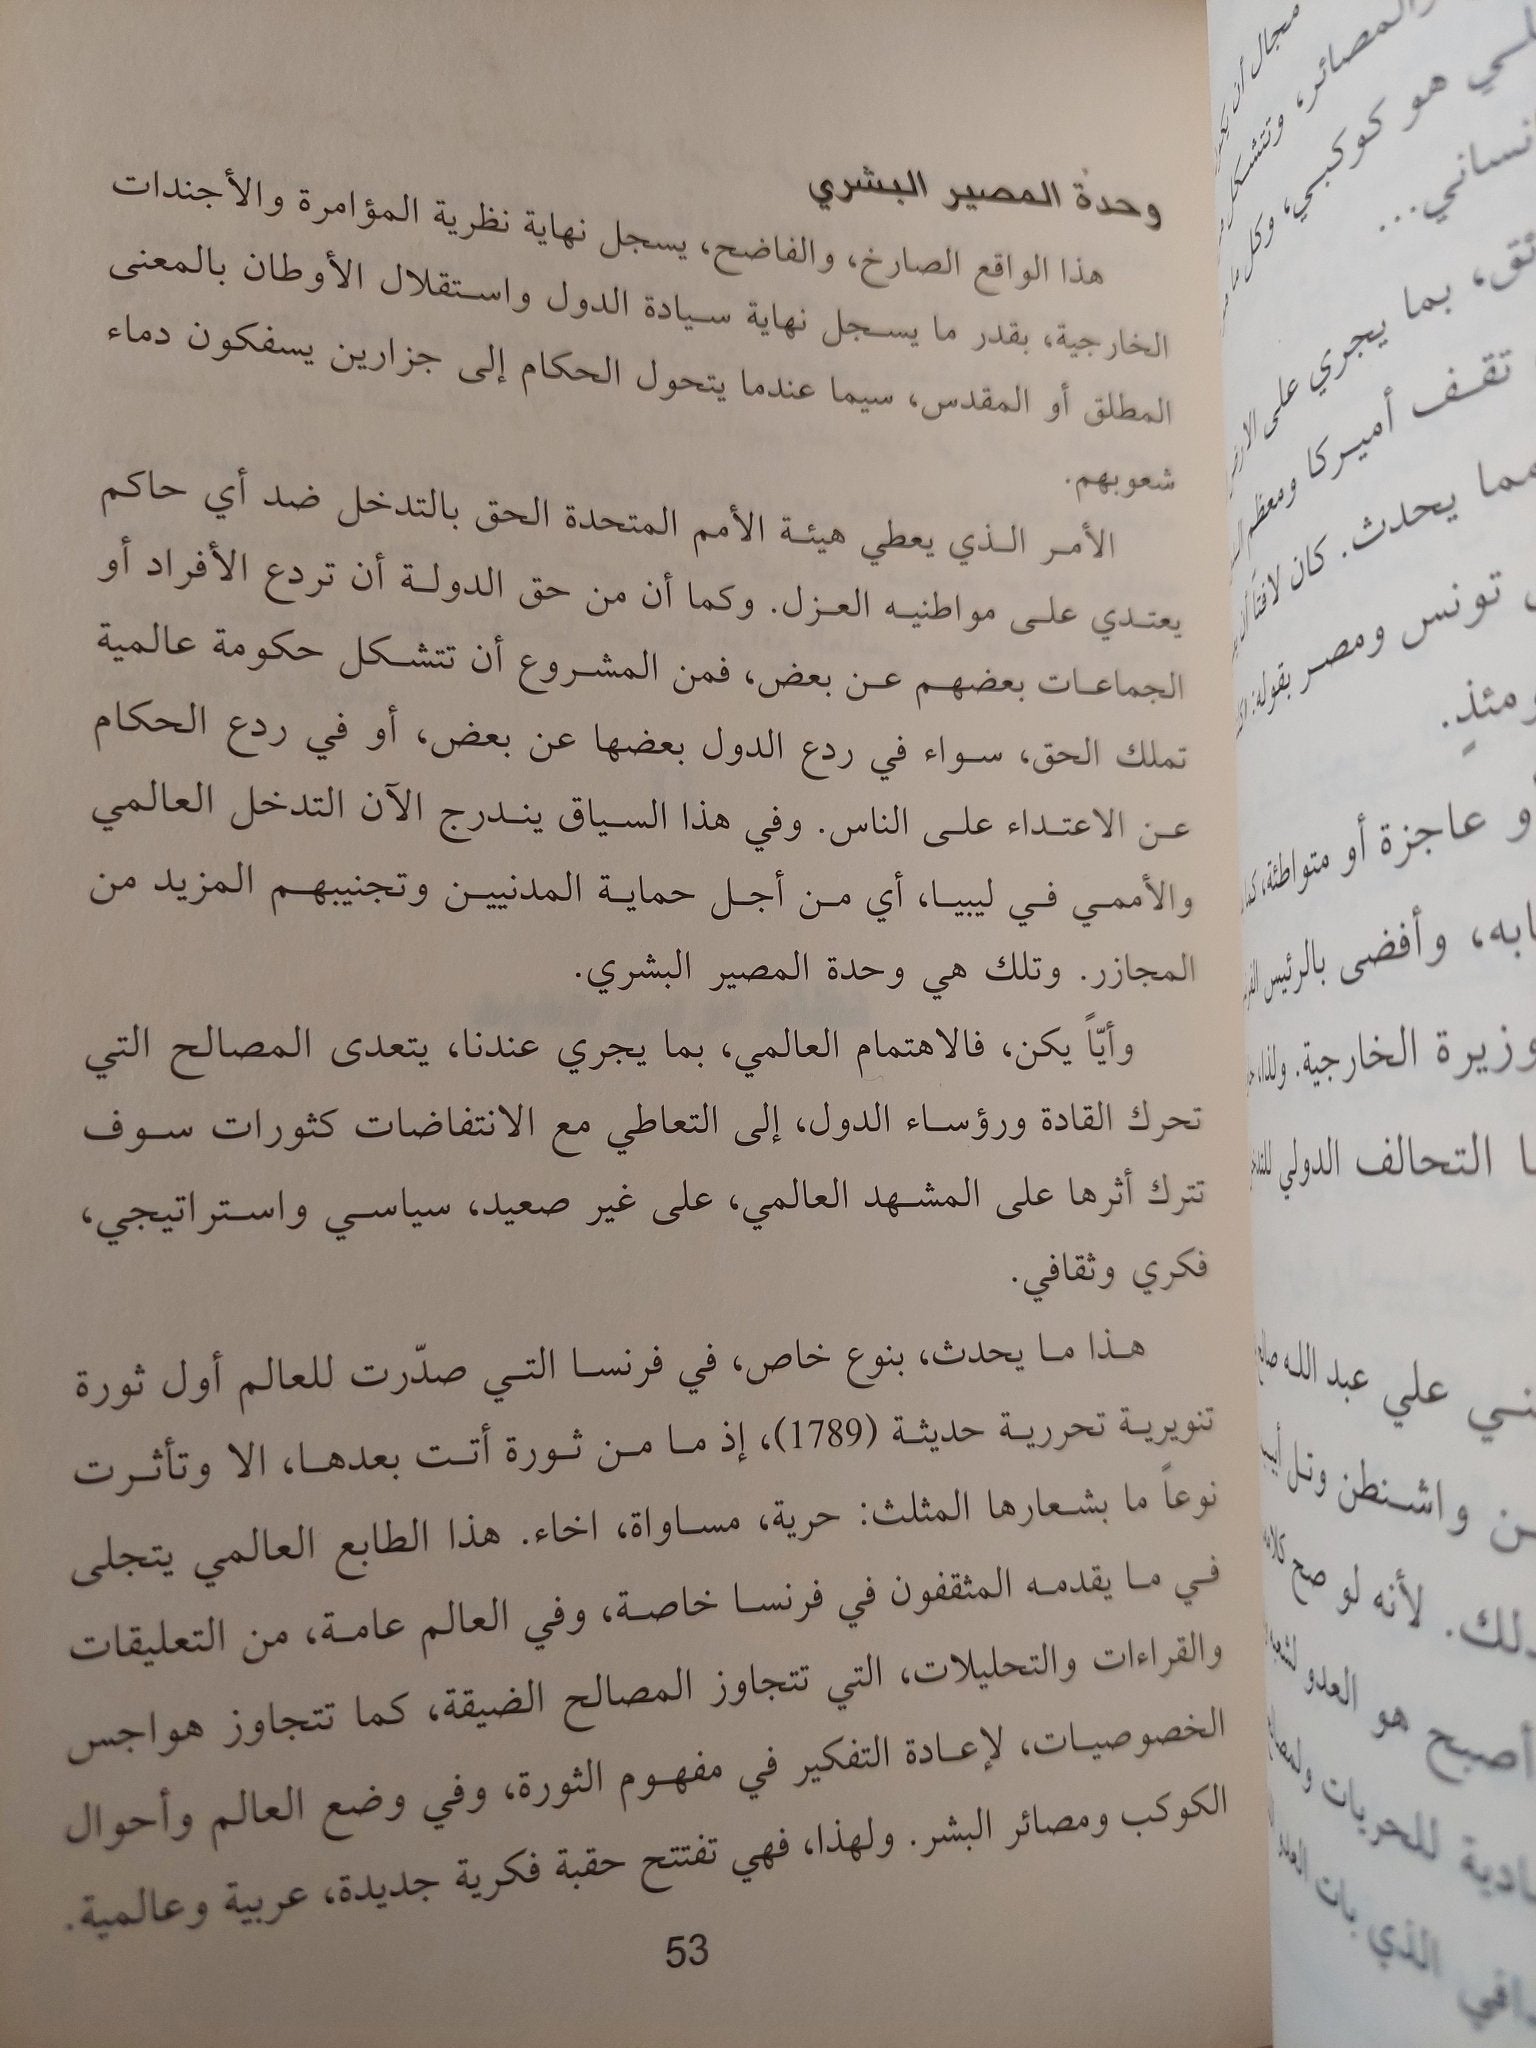 وحدة المصير البشري
هذا الواقع الصارخ، والفاضح، يسجل نهاية نظرية المؤامرة والأجندات
الخارجية، بقدر ما يسجل نهاية سيادة الدول واستقلال الأوطان بالمعنى
المطلق أو المقدس، سيما عندما يتحول الحكام إلى جزارين يسفكون دماء
شعوبهم.
الأمر الذي يعطي هيئة الأمم المتحدة الحق بالتدخل ضد أي حاكم
يعتدي على مواطنيه العزل. وكما أن من حق الدولة أن تردع الأفراد أو
الجماعات بعضهم عن بعض، فمن المشروع أن تتشكل حكومة عالمية
تملك الحق، سواء في ردع الدول بعضها عن بعض، أو في ردع الحكام
عن الاعتداء على الناس. وفي هذا السياق يندرج الآن التدخل العالمي
والأممي في ليبيا، أي من أجل حماية المدنيين وتجنيبهم المزيد من
المجازر. وتلك هي وحدة المصير البشري.
وأيّاً يكن، فالاهتمام العالمي، بما يجري عندنا، يتعدى المصالح التي
تحرك القادة ورؤساء الدول، إلى التعاطي مع الانتفاضات كثورات سوف
تترك أثرها على المشهد العالمي، على غير صعيد، سياسي واستراتيجي،
فكري وثقافي.
هذا ما يحدث، بنوع خاص، في فرنسا التي صدّرت للعالم أول ثورة
تنويرية تحررية حديثة (1789)، إذ ما من ثورة أتت بعدها، الا وتأثرت
نوعاً ما بشعارها المثلث: حرية، مساواة، اخاء. هذا الطابع العالمي يتجلى
في ما يقدمه المثقفون في فرنسا خاصة، وفي العالم عامة، من التعليقات
والقراءات والتحليلات، التي تتجاوز المصالح الضيقة، كما تتجاوز هواجس
الخصوصيات، لإعادة التفكير في مفهوم الثورة، وفي وضع العالم وأحوال
الكوكب ومصائر البشر. ولهذا، فهي تفتتح حقبة فكرية جديدة، عربية وعالمية.
53
مجال أن
والمصائر، وتتشكل
هو كوكبي، وكل ما
بما يجري على
تقف أميركا ومعظم
مما يحدث. كان لافتاً أن
تونس ومصر بقوله:
و عاجزة أو متواطئة،
وأفضى بالرئيس
وزيرة الخارجية. ولذا،
التحالف الدولي
علي عبد الله
واشنطن وتل
لأنه لو صح
أصبح هو العدو
للحريات
الذي بات